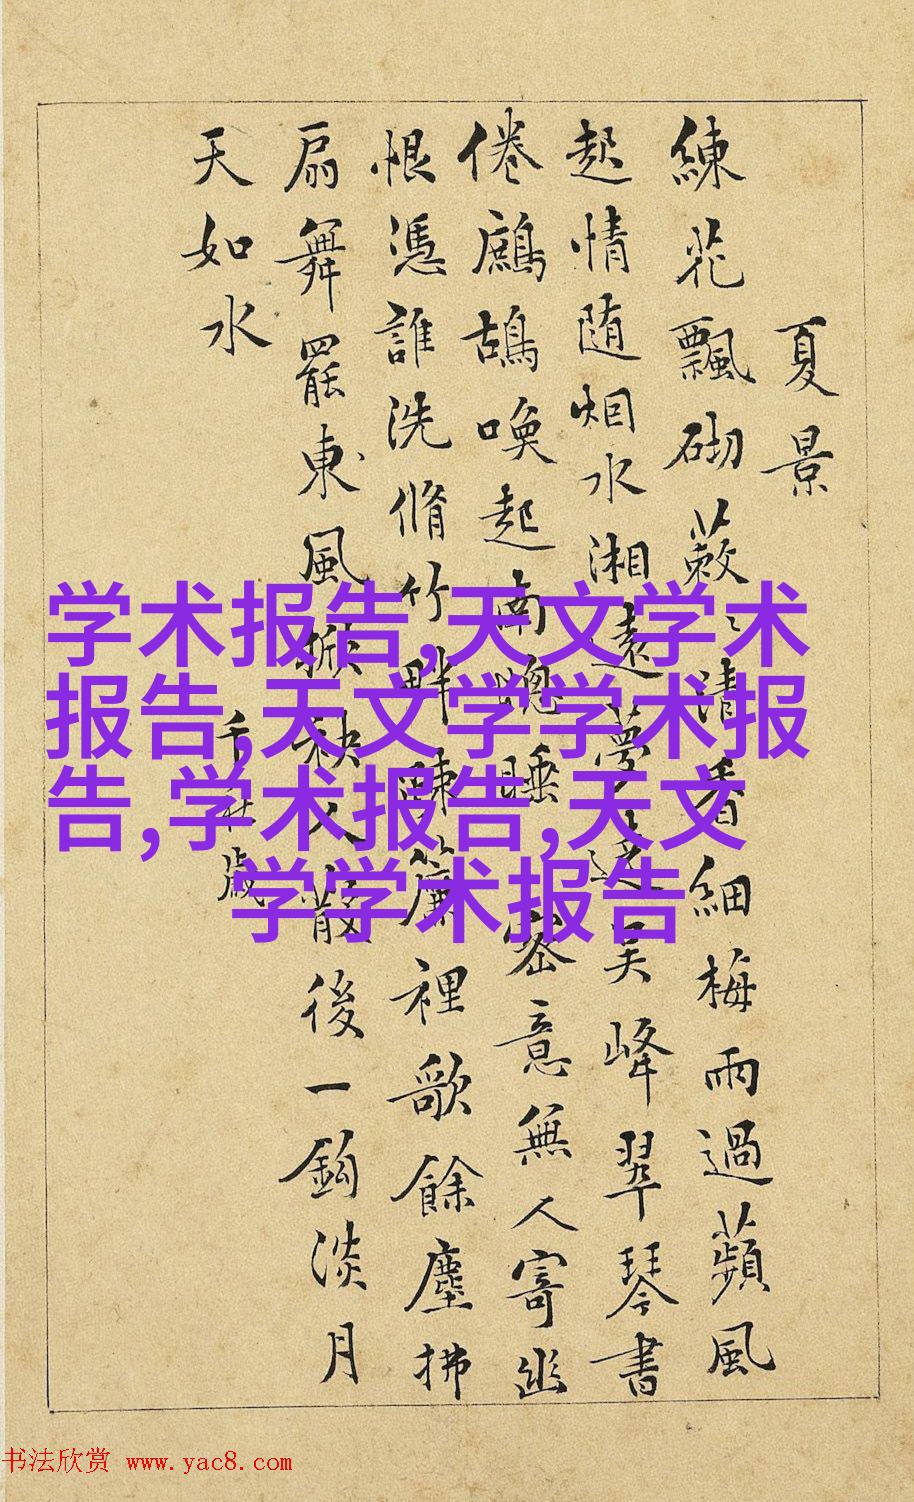 夏景
練花飄砌蔌〻清香細梅雨過蘋風
起情随烟水湘遠夢遶吳峰翠琴書
倦鷓鴣喚起南牕睡密意無人寄幽
恨憑誰洗脩竹畔疎簾裡歌餘塵拂
扇舞罷東風掀袂人散後一鉤淡月
天如水
千秋歲
学术报告,天文学术
报告,天文学学术报
告,学术报告,天文
学学术报告
书法欣赏 www.yac8.com